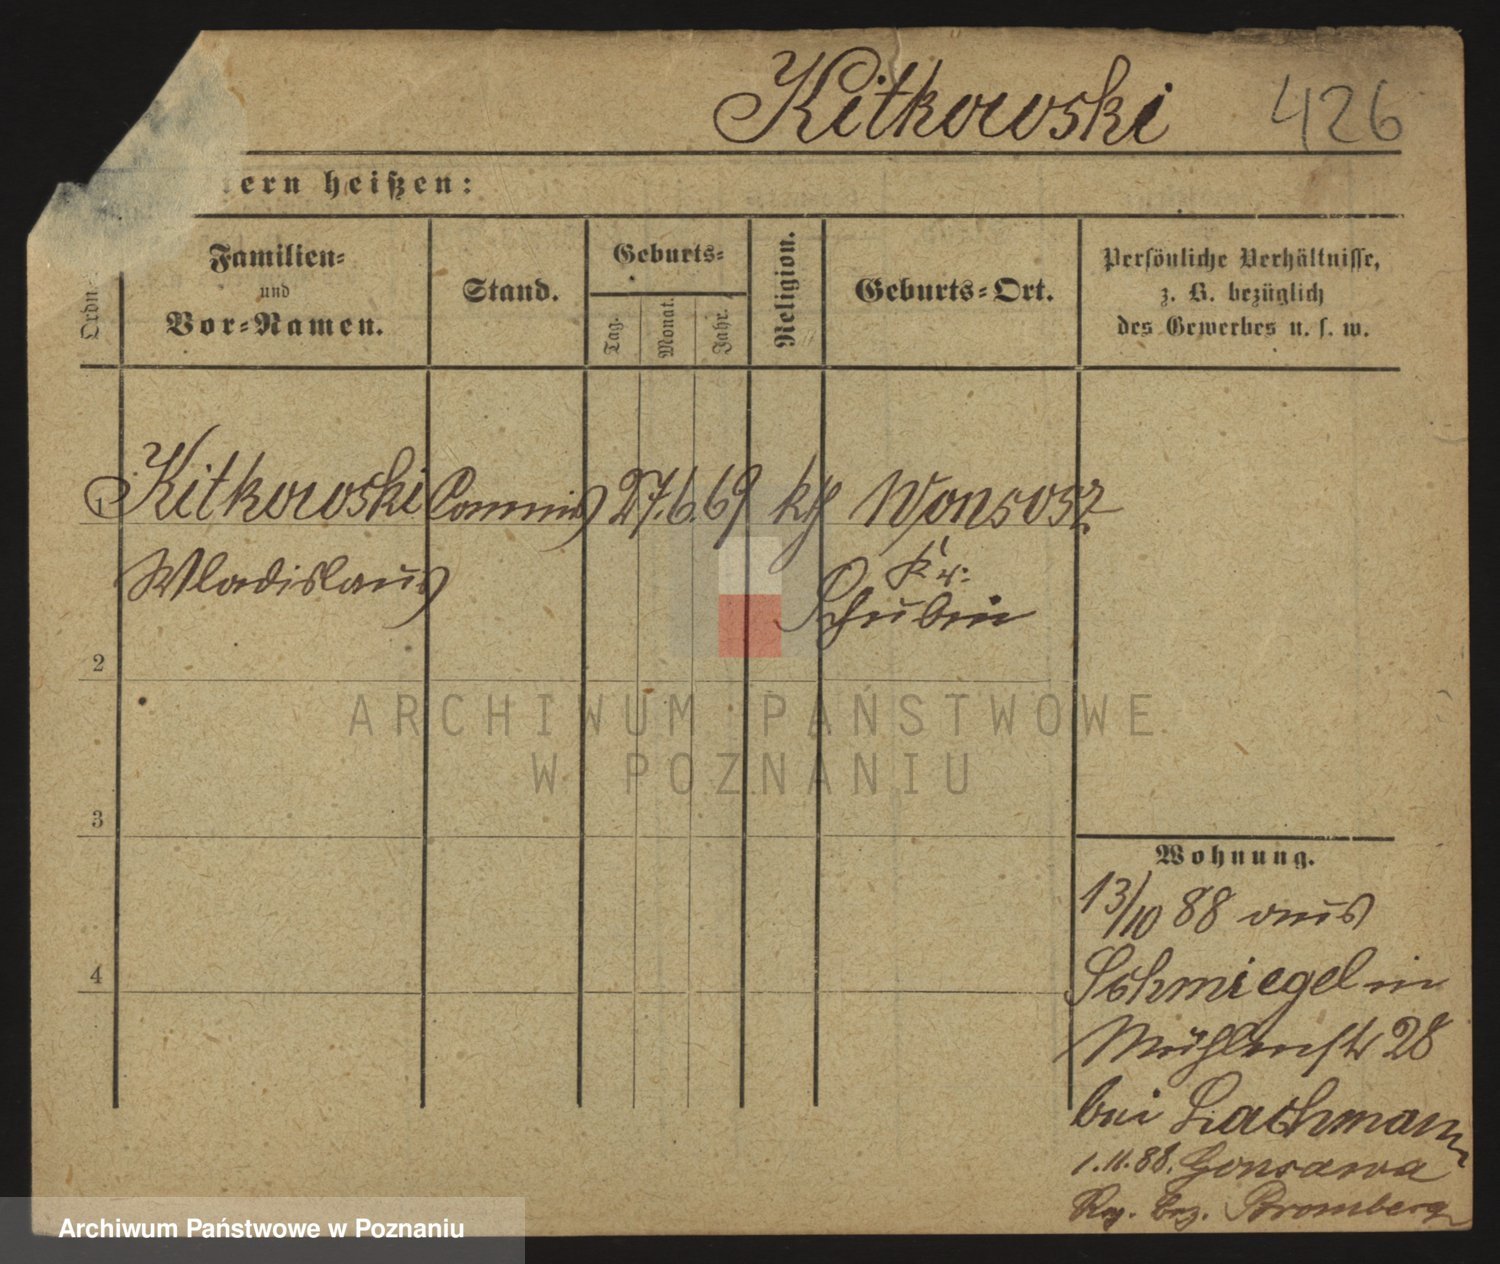 Kitkowski 426
tern heißen:
Ordn.
Familien-
und
Vor-Namen.
Stand.
Geburts-
Tag.
Monat.
Jahr.
Religion.
Geburts-Ort.
Persönliche Verhältnisse,
z. B. bezüglich
des Gewerbes u. s. w.
Kitkowski Commis 27. 6. 69 kth Wonsosz
Wladislaus Kr:
Schubin
2
3
4
Wohnung.
13/10 88 aus
Schmiegel in
Mühlenstr 28
bei Lachmann
1.11.88. Gonsawa
Reg. Bez. Bromberg
ARCHIWUM PAŃSTWOWE
W POZNANIU
Archiwum Państwowe w Poznaniu